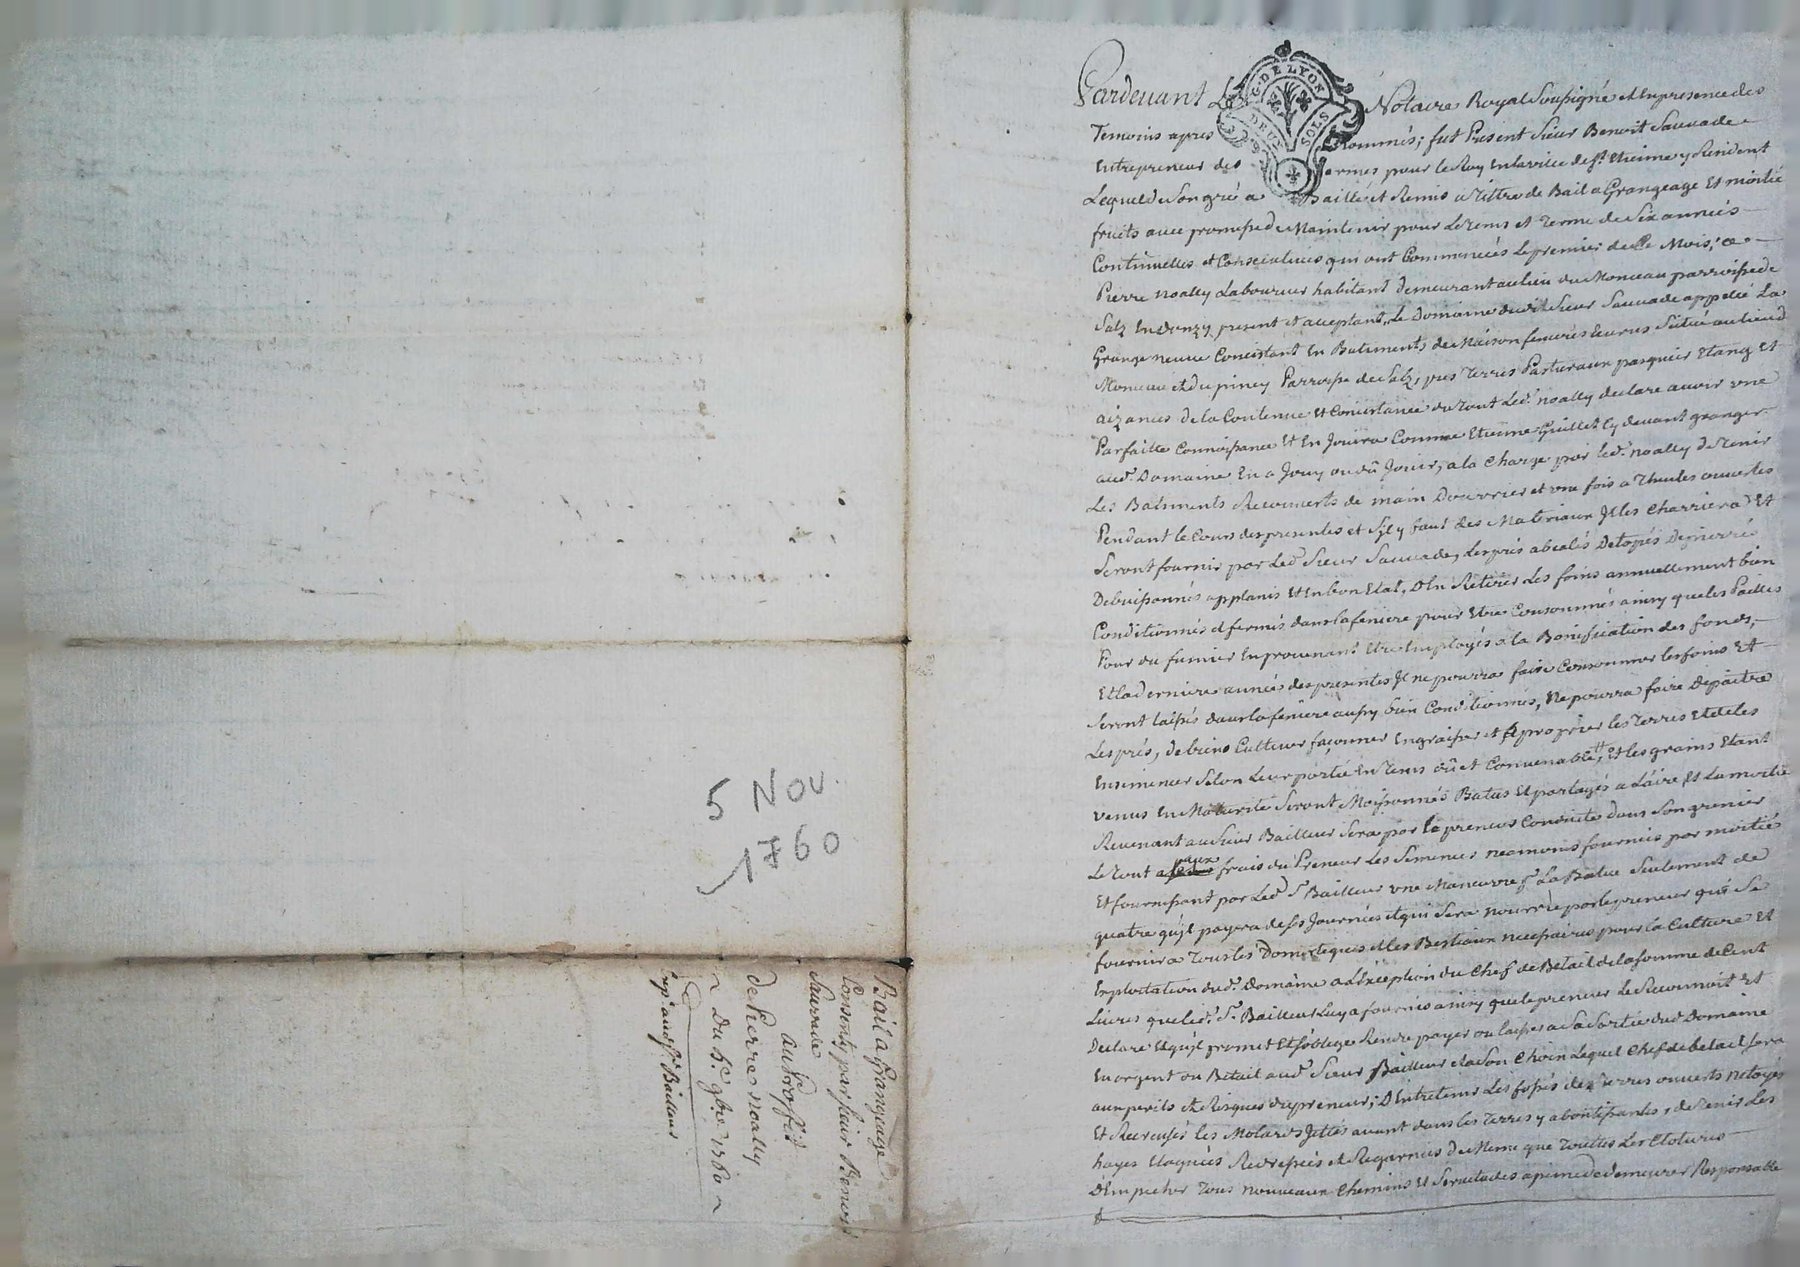 5 NOV.
1760
Bail a Grangeage
Consenty par sieur Benoit
Sauvade
au proffit
de Pierre noally
Du 5e. 9bre. 1760
exp. audt. sr. Bailleur
G. DE LYON
DEUX SOLS
Pardevant Le Notaire Royal Soussigné et En presence des
Temoins apres nommés; fut Present Sieur Benoit Sauvade
Entrepreneur des armes pour le Roy En la ville de st. Etienne y Resident
Lequel de Son gré a Baillé et Remis a Tittre de Bail a Grangeage Et moitié
fruits avec promesse de Maintenir pour le tems et Terme de Six années
Continuelles et Consecutives qui ont Commencées le premier de Ce Mois; a
Pierre noally Laboureur habitant demeurant au lieu du Monceau parroisse de
Salz En donzy present et acceptant, Le Domaine dudit Sieur Sauvade appellé La
Grange neuve Concistant En Batiments de Maison fenieres Ecuries Scitué au lieu de
Monceau et du piney Parroisse de Salz, prés Terres Pasturaux pasquier Etang Et
aizances de la Contenue Et Concistance du Tout Led. noally declare avoir une
Parfaitte Connoissance Et En Jouira Comme Etienne Guillet Cy devant granger
aud. Domaine En a Jouy ou dû Jouir, a la Charge par led. noally de Tenir
Les Batiments Recouverts de main D'ouvrier et une fois a Thuiles ouvertes
Pendant le Cours des presentes et s'il y faut des Materiaux Il les Charriera Et
Seront fournis par Led. Sieur Sauvade, Les prés abealés Detopés Depierrés
Debuissonnés applanis Et En bon Etat, D'En Retirer Les foins annuellement bien
Conditionnés et fermés dans la feniere pour Etre Consommés ainsy que les Pailles
Pour du fumier En provenant Etre Employés a la Bonification des fonds,
Et la derniere année des presentes Il ne pourra faire Consommer les foins Et
Seront laissés dans la feniere aussy bien Conditionnés, Ne pourra faire Depaitre
Les prés, de bien Cultiver façonner Engraisser et aproprier les Terres Et de les
Ensemencer Selon Leur portée En Tems dû et Convenable, Et les grains Etant
venus En Maturité Seront Moissonnés Batus Et partagés a L'aire, Et La moitié
Revenant au Sieur Bailleur Sera par le preneur Conduitte dans Son grenier
Le Tout aux frais du Preneur Les Semences neamoins fournies par moitié
Et fournissant par Led. Sr. Bailleur une Manoeuvre pr. La Batue Seulement de
quatre qu'il payera de ses Journées et qui Sera nourrie par le preneur qui Se
fournira Tous les Domestiques et les Bestiaux necessaires pour la Culture Et
Exploitation dud. Domaine a L'Exception du Chef de Betail de la Somme de Cent
Livres que led. Sr. Bailleur Luy a fournis ainsy que le preneur Le Reconnoit Et
Declare Et qu'il promet Et s'oblige Rendre payer ou laisser a Sa Sortie dud. Domaine
En argent ou Betail aud. Sieur Bailleur et a Son Choix Lequel Chef de betail Sera
aux perils et Risques du preneur; D'Entretenir Les fossés des Terres ouverts netoyés
Et Recreusés les Molards Jettés avant dans les Terres y aboutissantes, de Tenir Les
hayes Elaguées Redressées et Regarnies de Meme que Toutes Les Clotures
D'Empecher Tous nouveaux Chemins Et Servitudes a peine de demeurer Responsable